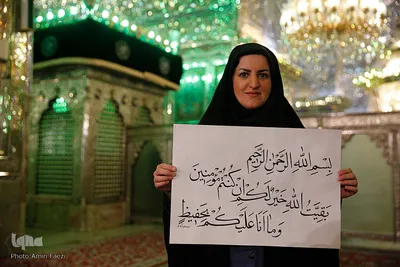 بِسْمِ اللهِ الرَّحْمٰنِ الرَّحِيْمِ
بَقِيَّتُ اللهِ خَيْرٌ لَكُمْ اِنْ كُنْتُمْ مُؤْمِنِينَ
وَمَا اَنَا عَلَيْكُمْ بِحَفِيظٍ
iqna
Photo: Amin Faezi